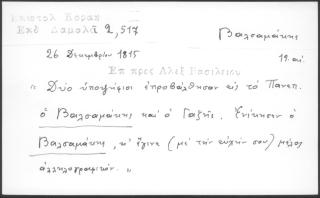 Επιστολ Κοραη
Εκδ Δαμαλᾶ 2,517
Βαλσαμάκης
26 Δεκεμβρίου 1815
19. αι.
Επ προς Αλεξ Βασιλειου
" Δύο ὑποψήφιοι ἐπροβάλθησαν εἰς τὸ Πανεπ.
ὁ Βαλσαμάκης καὶ ὁ Γαζῆς. Ἐνίκησεν ὁ
Βαλσαμάκης, κ' ἔγινε (μὲ τὴν εὐχήν σου) μέλος
ἀλληλογραφικόν. "